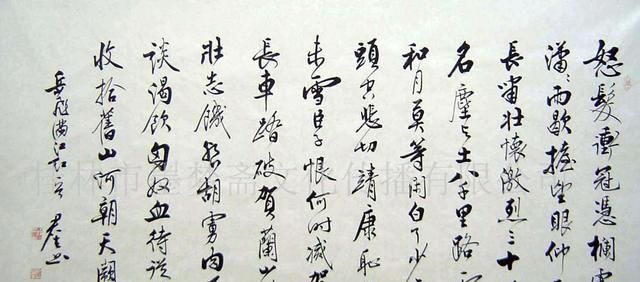 怒髮衝冠憑欄
瀟瀟雨歇擡望眼仰
長嘯壯懷激烈三十
名塵与土八千里路
和月莫等閑白了少
頭空悲切靖康恥
未雪臣子恨何時滅駕
長車踏破賀蘭山
壯志饑餐胡虜肉
談渴飲匈奴血待從
收拾舊山河朝天闕
岳飛滿江紅
桂林市墨梦斋文化传播有限